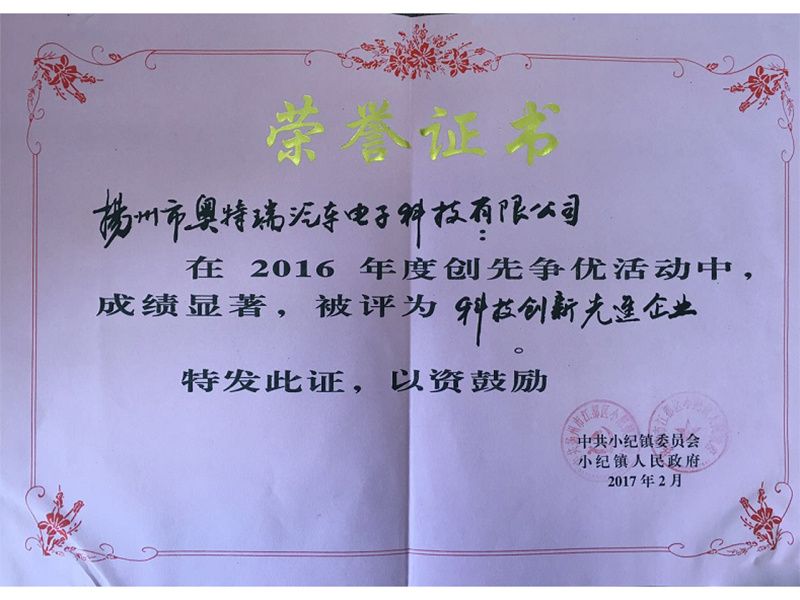 荣誉证书
揚州市奥特瑞汽车电子科技有限公司
：
在 2016 年度创先争优活动中，
成绩显著，被评为 科技创新先進企业
。
特发此证，以资鼓励
中共小纪镇委员会
小纪镇人民政府
2017 年 2 月